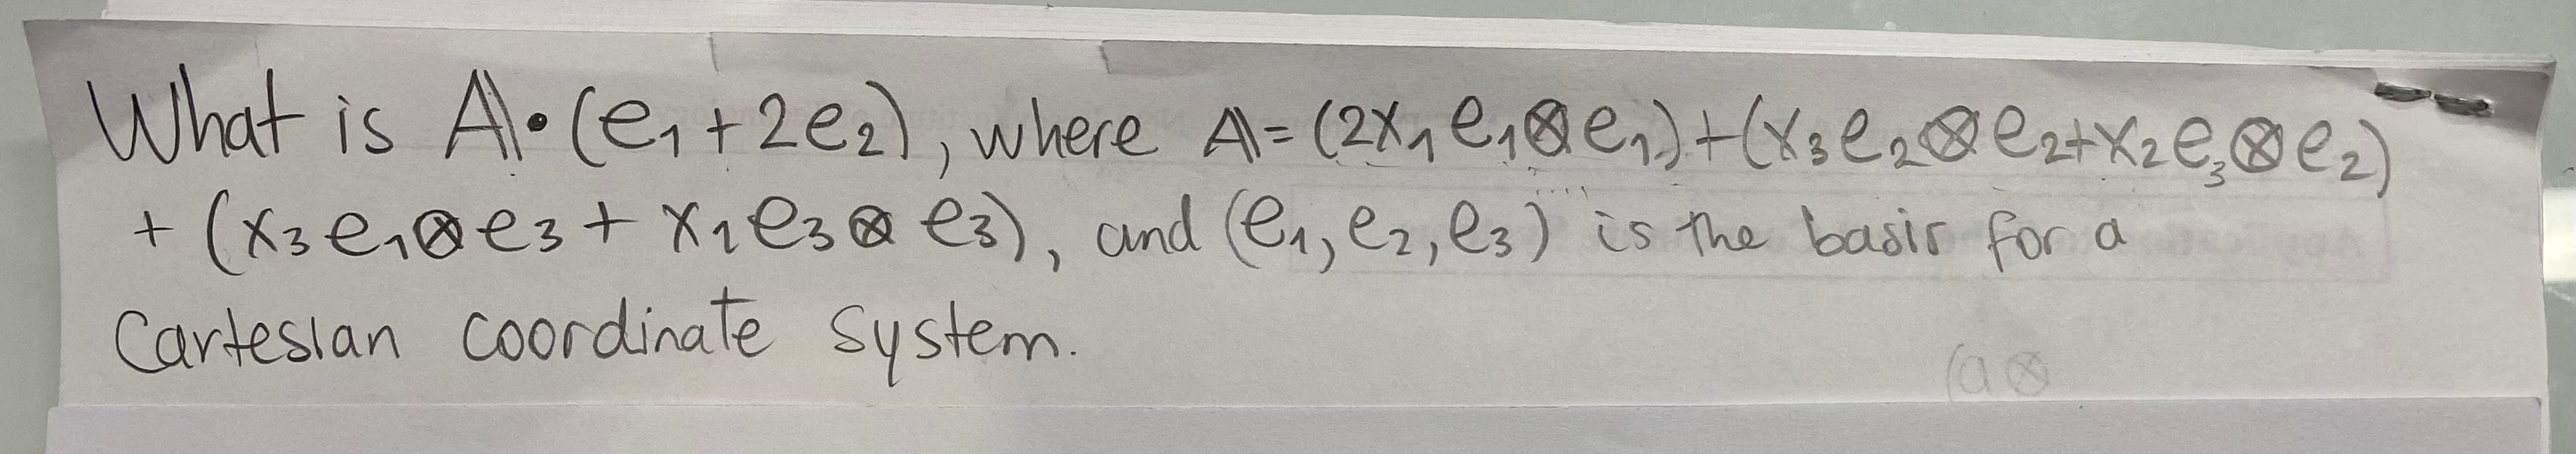 What is A·(e₁+2e₂), where A=(2x₁e₁⊗e₁)+(x₃e₂⊗e₂+x₂e₃⊗e₂)
+ (x₃e₁⊗e₃ + x₁e₃⊗e₃), and (e₁, e₂, e₃) is the basis for a
Cartesian coordinate system.
(a⊗